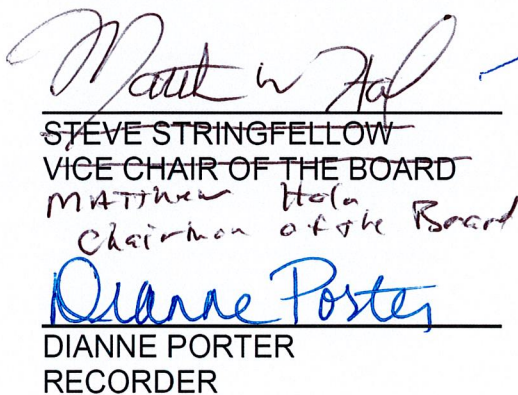 Matt W Hal
STEVE STRINGFELLOW
VICE CHAIR OF THE BOARD
MATThew Hola
Chairman of the Board
Dianne Porter
DIANNE PORTER
RECORDER